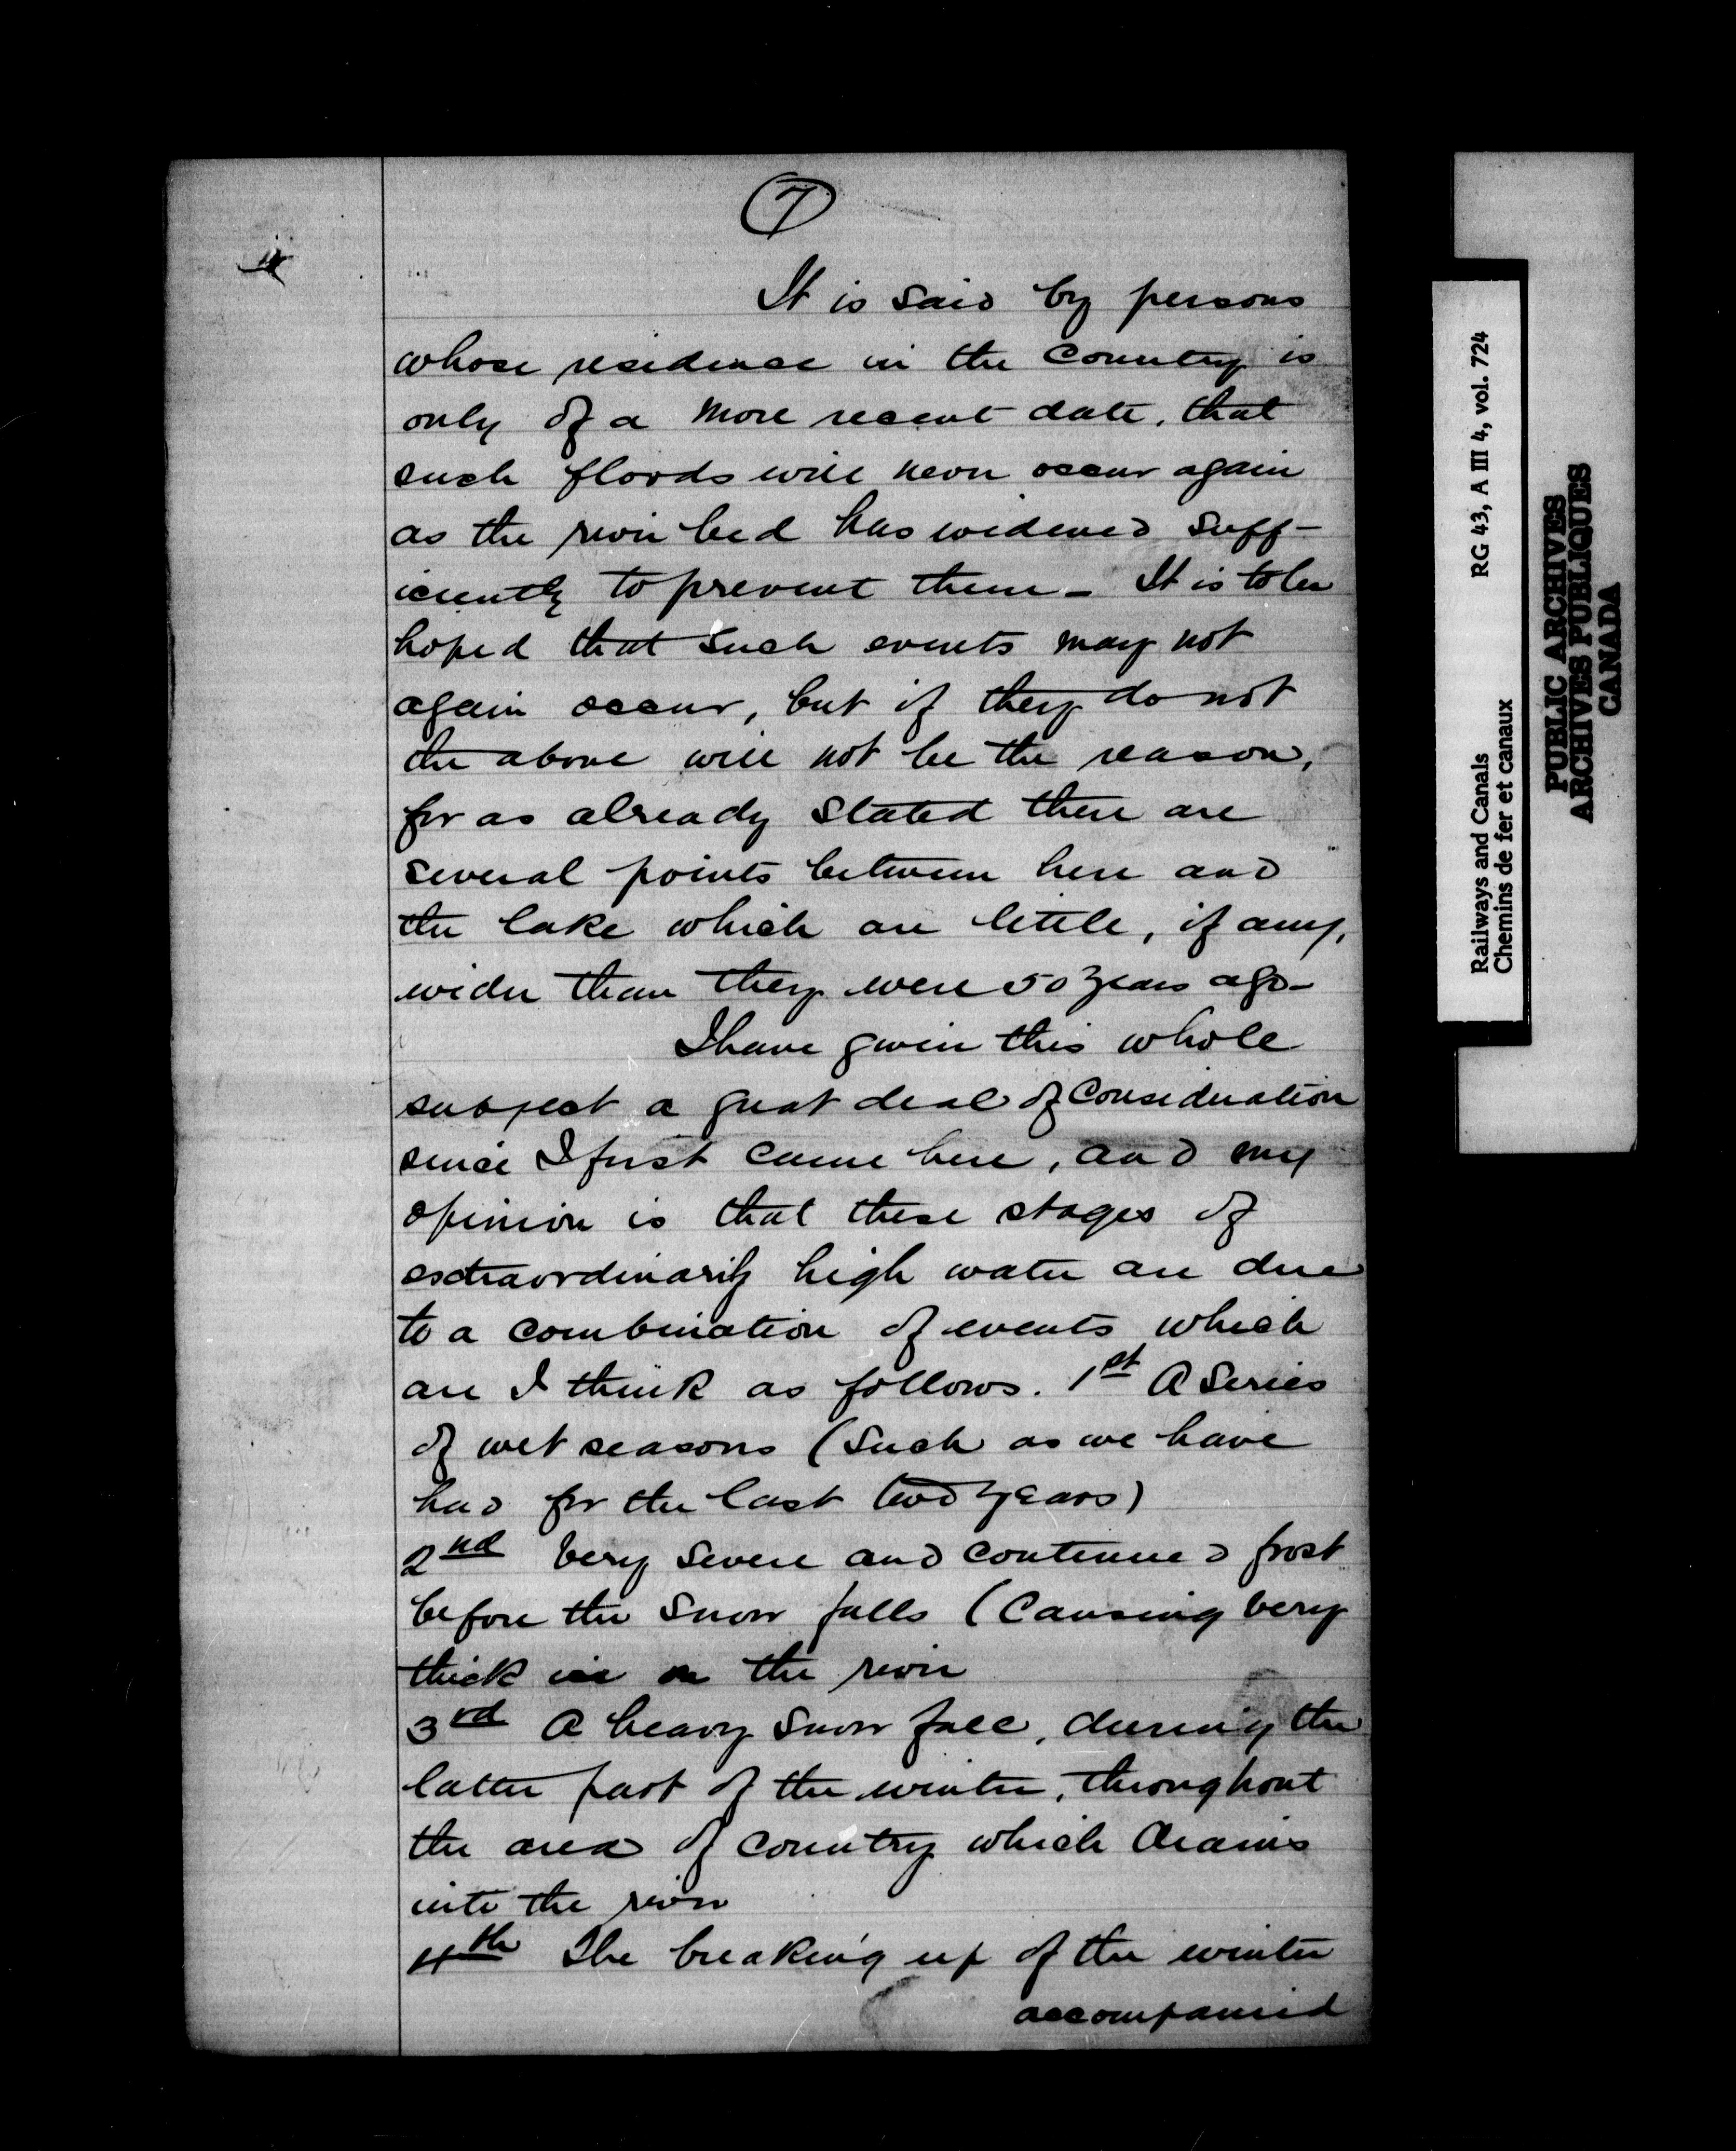 7
It is said by persons
whose residence in the Country is
only of a more recent date, that
such floods will never occur again
as the river bed has widened suff-
iciently to prevent them - It is to be
hoped that such events may not
again occur, but if they do not
the above will not be the reason,
for as already stated there are
several points between here and
the lake which are little, if any,
wider than they were 50 years ago -
I have given this whole
subject a great deal of Consideration
since I first came here, and my
opinion is that these stages of
extraordinarily high water are due
to a combination of events which
are I think as follows. 1st A Series
of wet seasons (such as we have
had for the last two years)
2nd Very severe and continued frost
before the snow falls (Causing very
thick ice on the river
3rd A heavy snow fall, during the
latter part of the winter, throughout
the area of country which drains
into the river
4th The breaking up of the winter
accompanied
Railways and Canals RG 43, A III 4, vol. 724
Chemins de fer et canaux
PUBLIC ARCHIVES
ARCHIVES PUBLIQUES
CANADA